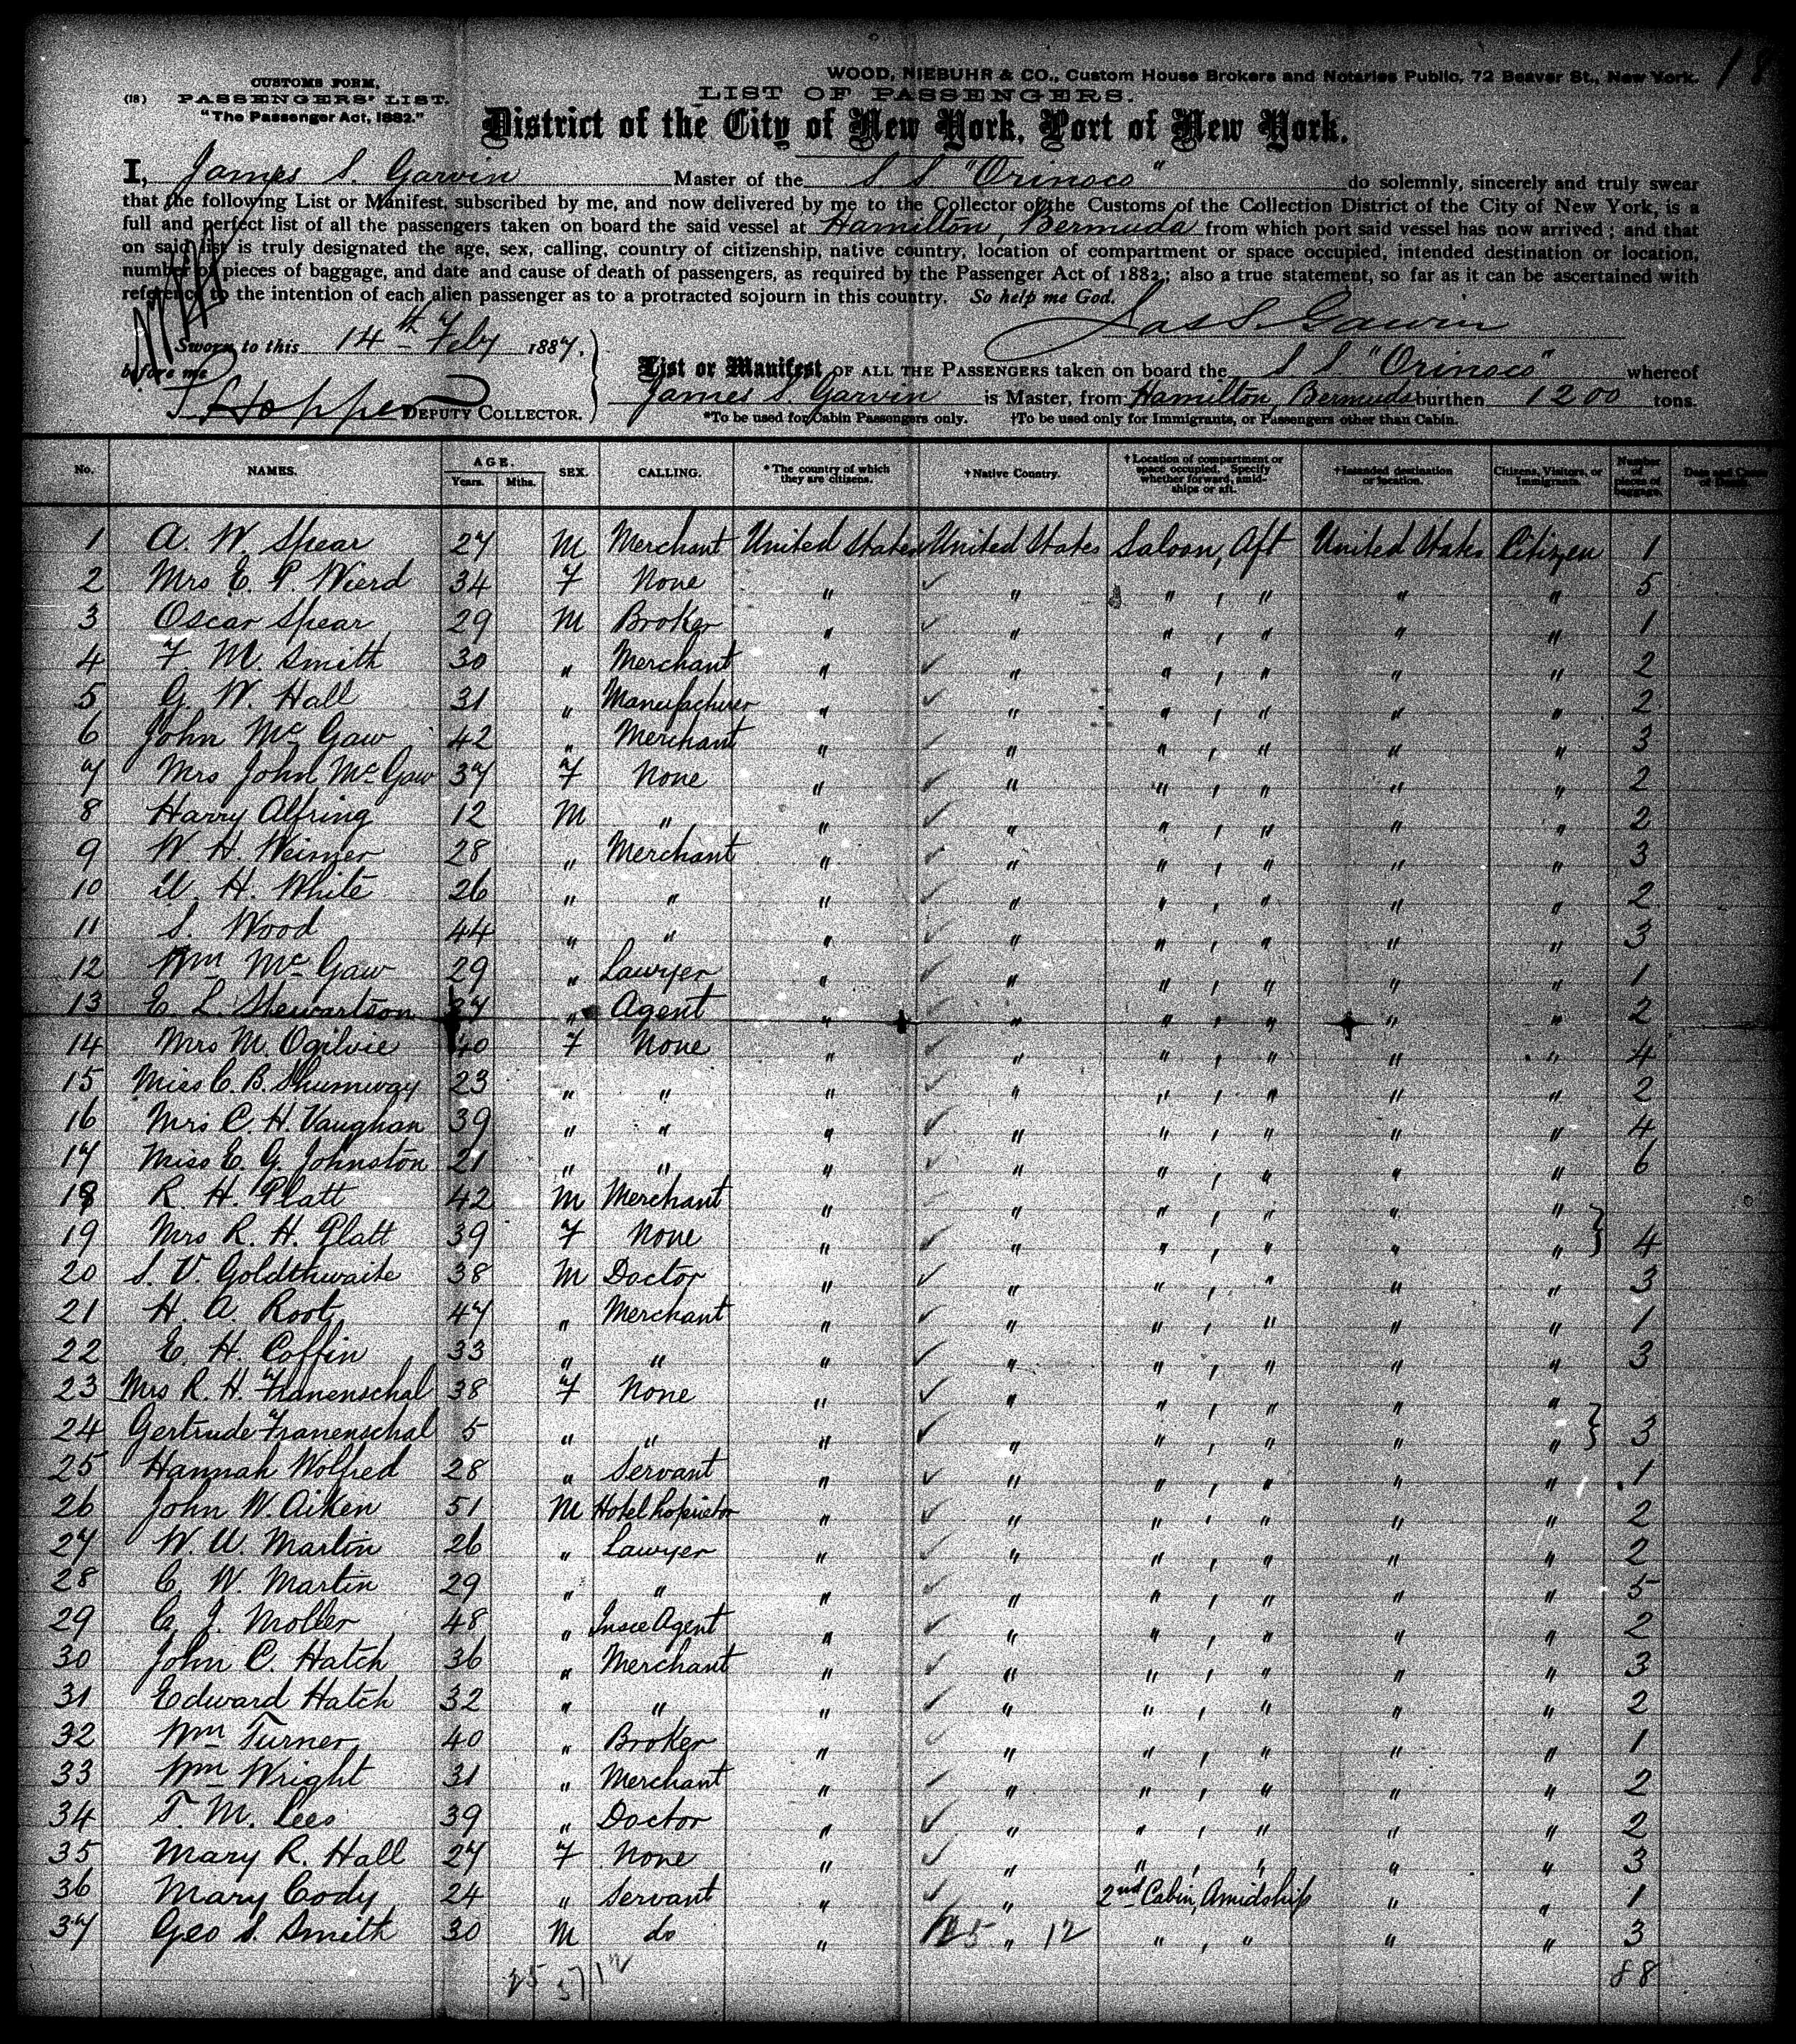 18
WOOD, NIEBUHR & CO., Custom House Brokers and Notaries Public, 72 Beaver St., New York.
CUSTOMS FORM,
(18) PASSENGERS' LIST.
"The Passenger Act, 1882."
LIST OF PASSENGERS.
District of the City of New York, Port of New York.
I, James S. Garvin Master of the S S "Orinoco" do solemnly, sincerely and truly swear
that the following List or Manifest, subscribed by me, and now delivered by me to the Collector of the Customs of the Collection District of the City of New York, is a
full and perfect list of all the passengers taken on board the said vessel at Hamilton, Bermuda from which port said vessel has now arrived; and that
on said list is truly designated the age, sex, calling, country of citizenship, native country, location of compartment or space occupied, intended destination or location,
number of pieces of baggage, and date and cause of death of passengers, as required by the Passenger Act of 1882; also a true statement, so far as it can be ascertained with
reference to the intention of each alien passenger as to a protracted sojourn in this country. So help me God.
Jas S. Garvin
Sworn to this 14th Feby 1887.
before me
Hopper DEPUTY COLLECTOR.
List or Manifest OF ALL THE PASSENGERS taken on board the S S "Orinoco" whereof
James S. Garvin is Master, from Hamilton, Bermuda burthen 1200 tons.
*To be used for Cabin Passengers only. †To be used only for Immigrants, or Passengers other than Cabin.
No. NAMES. AGE. Years. Mths. SEX. CALLING. *The country of which they are citizens. †Native Country. †Location of compartment or space occupied. Specify whether forward, amidships or aft. †Intended destination or location. Citizens, Visitors, or Immigrants. Number of pieces of baggage. Date and Cause of Death.
1 A. W. Spear 27 M Merchant United States United States Saloon, Aft United States Citizen 1
2 Mrs E. P. Wierd 34 F None " " " , " " " 5
3 Oscar Spear 29 M Broker " " " , " " " 1
4 F. M. Smith 30 " Merchant " " " , " " " 2
5 G. W. Hall 31 " Manufacturer " " " , " " " 2
6 John McGaw 42 " Merchant " " " , " " " 3
7 Mrs John McGaw 37 F None " " " , " " " 2
8 Harry Alfring 12 M " " " " , " " " 2
9 W. H. Weimer 28 " Merchant " " " , " " " 3
10 W. H. White 26 " " " " " , " " " 2
11 S. Wood 44 " " " " " , " " " 3
12 Wm McGaw 29 " Lawyer " " " , " " " 1
13 E. L. Stewartson 27 " Agent " " " , " " " 2
14 Mrs M. Ogilvie 40 F None " " " , " " " 4
15 Miss C. B. Shumway 23 " " " " " , " " " 2
16 Mrs C. H. Vaughan 39 " " " " " , " " " 4
17 Miss E. G. Johnston 21 " " " " " , " " " 6
18 R. H. Platt 42 M Merchant " " " , " " "
19 Mrs R. H. Platt 39 F None " " " , " " " } 4
20 S. V. Goldthwaite 38 M Doctor " " " , " " " 3
21 H. A. Root 47 " Merchant " " " , " " " 1
22 E. H. Coffin 33 " " " " " , " " " 3
23 Mrs R. H. Franenschal 38 F None " " " , " " "
24 Gertrude Franenschal 5 " " " " " , " " " } 3
25 Hannah Wolfred 28 " Servant " " " , " " " 1
26 John W. Aiken 51 M Hotel Proprietor " " " , " " " 2
27 W. U. Martin 26 " Lawyer " " " , " " " 2
28 C. W. Martin 29 " " " " " , " " " 5
29 C. J. Moller 48 " Insce Agent " " " , " " " 2
30 John C. Hatch 36 " Merchant " " " , " " " 3
31 Edward Hatch 32 " " " " " , " " " 2
32 Wm Turner 40 " Broker " " " , " " " 1
33 Wm Wright 31 " Merchant " " " , " " " 2
34 T. M. Lees 39 " Doctor " " " , " " " 2
35 Mary R. Hall 27 F None " " " , " " " 3
36 Mary Cody 24 " Servant " " 2nd Cabin, Amidship " " 1
37 Geo S. Smith 30 M do " 25 " 12 " , " " " 3
25 37 12 88